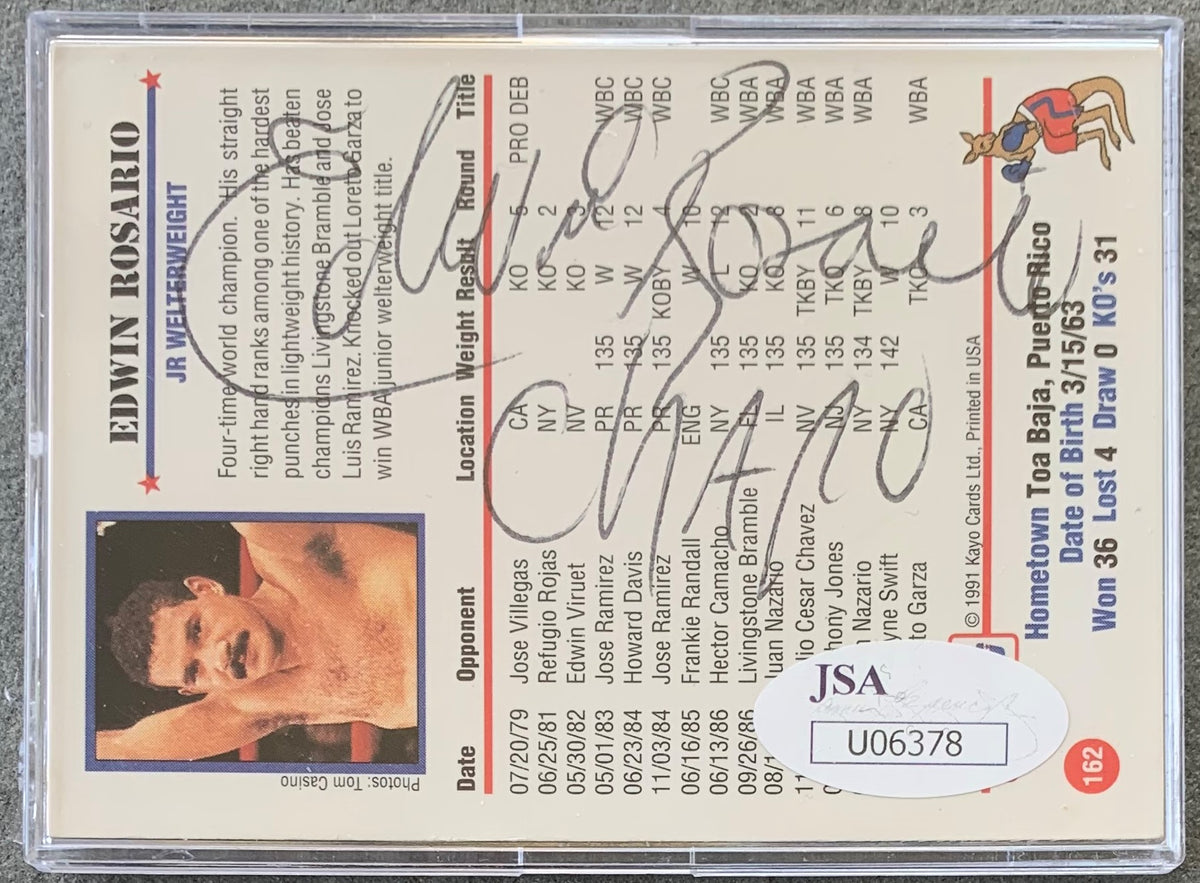 EDWIN ROSARIO
JR WELTERWEIGHT
Four-time world champion. His straight
right hand ranks among one of the hardest
punches in lightweight history. Has beaten
champions Livingstone Bramble and Jose
Luis Ramirez. Knocked out Loreto Garza to
win WBA junior welterweight title.
Photos: Tom Casino
Date Opponent Location Weight Result Round Title
07/20/79 Jose Villegas CA KO 5 PRO DEB
06/25/81 Refugio Rojas NY KO 2
05/30/82 Edwin Viruet NV KO 3
05/01/83 Jose Ramirez PR 135 W 12 WBC
06/23/84 Howard Davis PR 135 W 12 WBC
11/03/84 Jose Ramirez PR 135 KOBY 4 WBC
06/16/85 Frankie Randall ENG W 10
06/13/86 Hector Camacho NY 135 L 12 WBC
09/26/86 Livingstone Bramble FL 135 KO 2 WBA
08/1 Juan Nazario IL 135 KO 8 WBA
11 lio Cesar Chavez NV 135 TKBY 11 WBA
thony Jones NJ 135 TKO 6 WBA
Nazario NY 134 TKBY 8 WBA
yne Swift NY 142 W 10
to Garza CA TKO 3 WBA
Edwin Rosario
CHAPO
© 1991 Kayo Cards Ltd., Printed in USA
Hometown Toa Baja, Puerto Rico
Date of Birth 3/15/63
Won 36 Lost 4 Draw 0 KO's 31
162
JSA
U06378